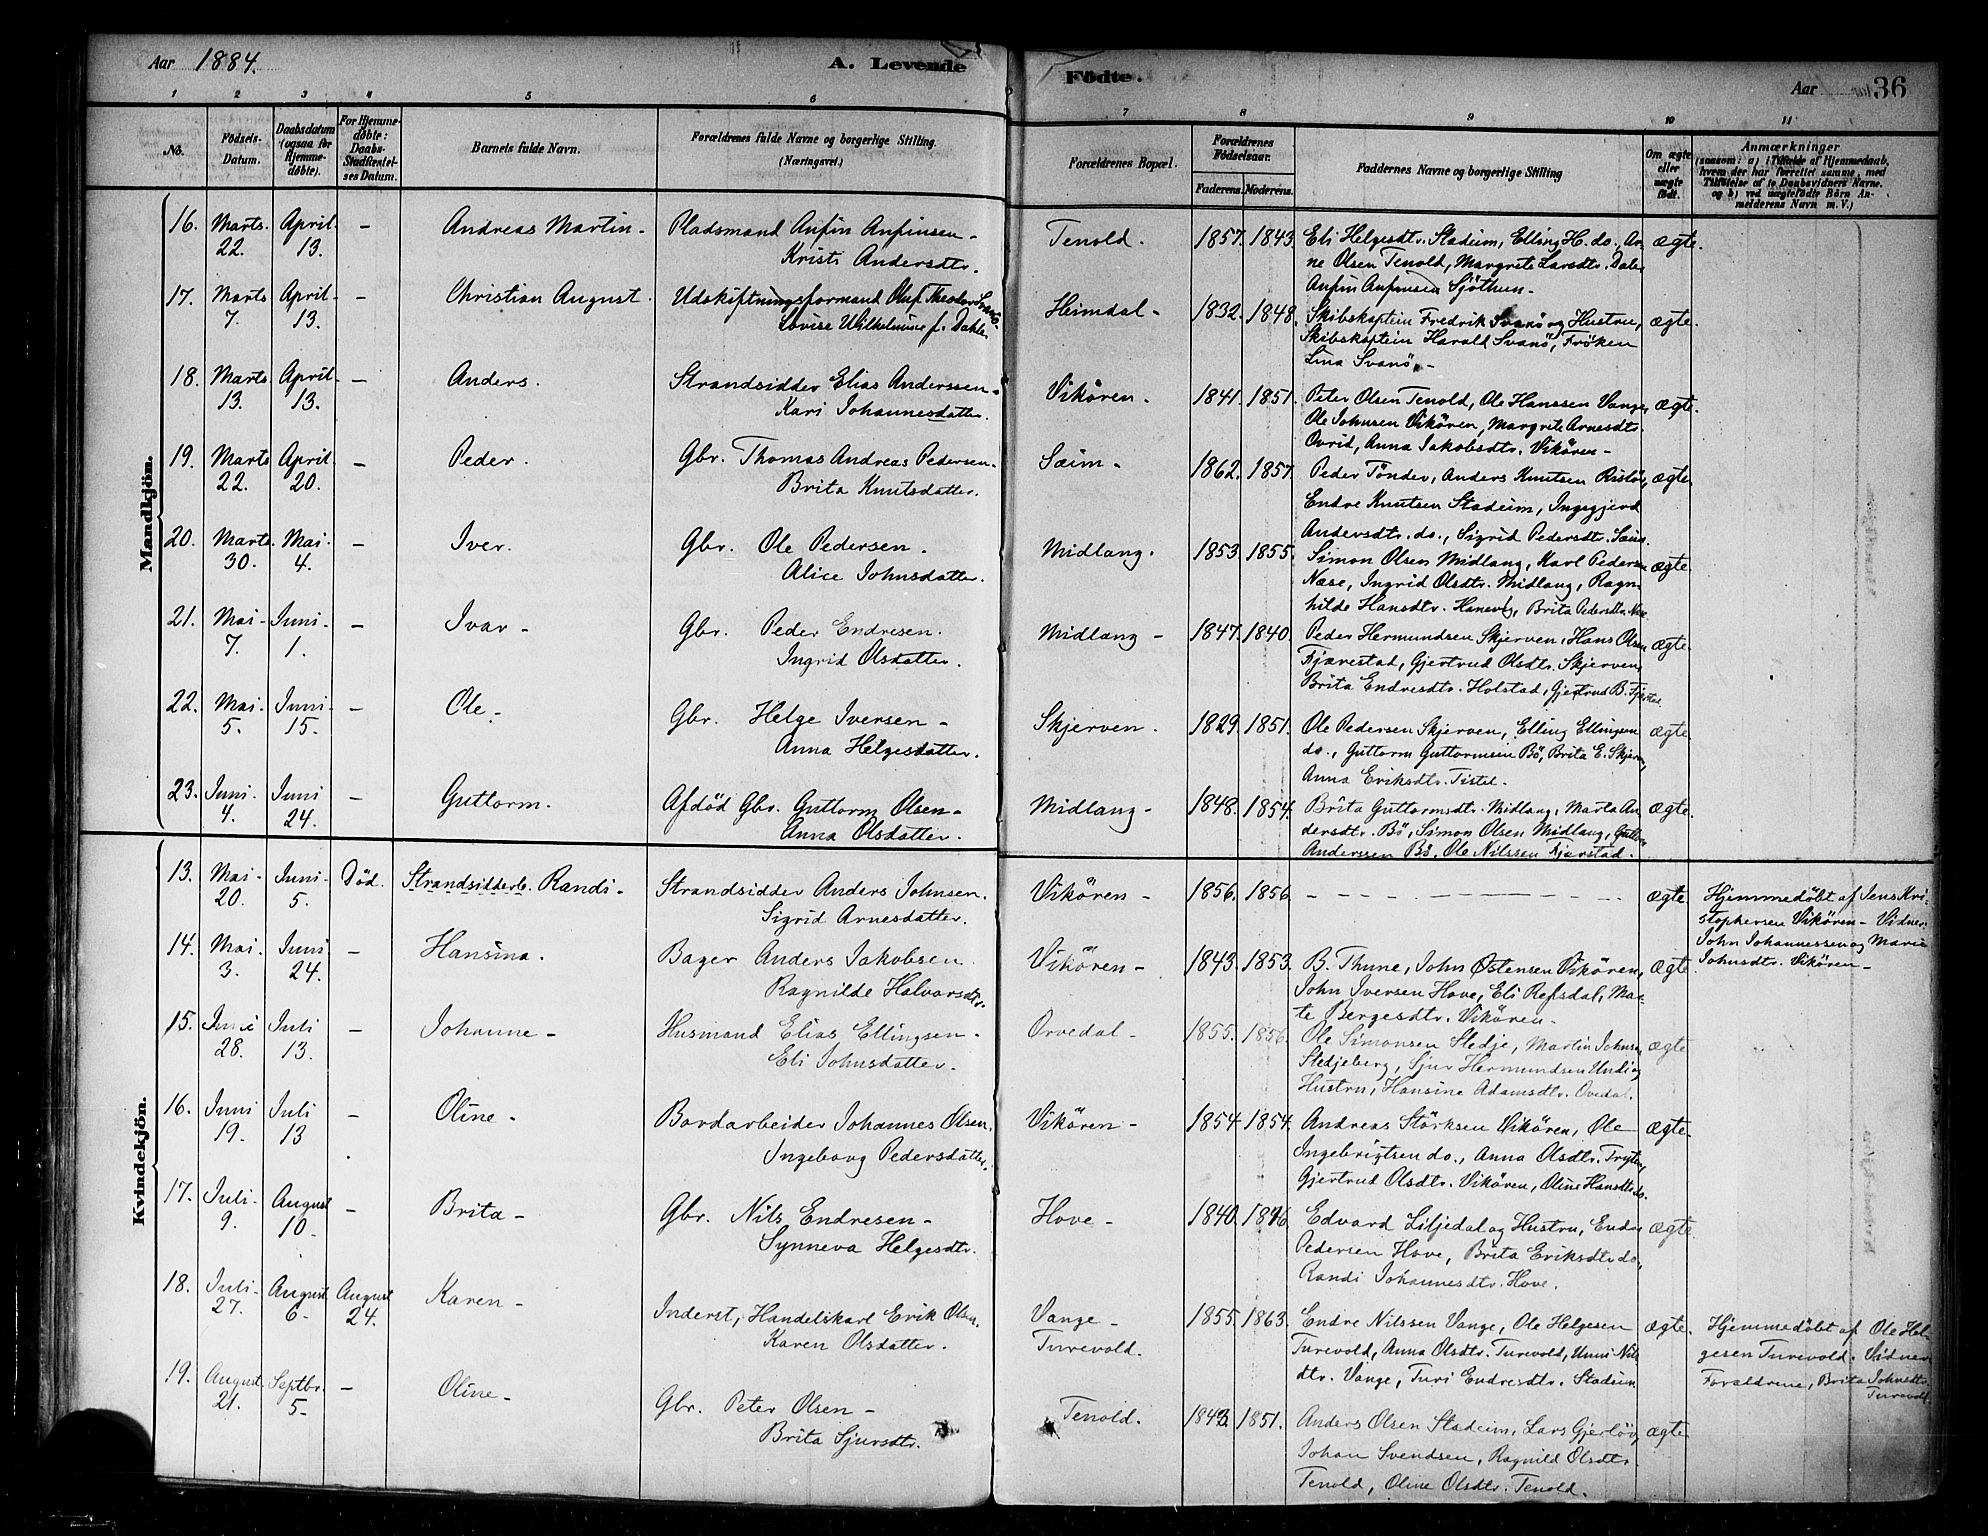 Aar 1884. A. Levende Födte. Aar 36
1 2 3 4 5 6 7 8 9 10 11
No. Födsels-Datum. Daabsdatum (ogsaa for Hjemmedöbte). For Hjemmedöbte: Daabs-Stadfæstelses Datum. Barnets fulde Navn. Forældrenes fulde Navne og borgerlige Stilling. (Næringsvei.) Forældrenes Bopæl. Forældrenes Födselsaar. Faderens. Moderens. Faddernes Navne og borgerlige Stilling Om ægte eller uægte födt. Anmærkninger
(saasom: a) i Tilfælde af Hjemmedaab, hvem der har forrettet samme, med Tilföielse af to Daabsvidners Navne, og b) ved uægtefödte Börn Anmelderens Navn m. V.)
Mandkjön.
16. Marts 22. April 13. – Andreas Martin – Pladsmand Anfin Anfinsen –
Kristi Andersdtr.
Tenold. 1857. 1843. Eli Helgesdtr. Stadeim, Elling H. do., Ar-
ne Olsen Tenold, Margrete Larsdtr. Dale
Anfin Anfinsen Sjöthun – ægte.
17. Marts 7. April 13. – Christian August. Udskiftningsformand Oluf Theodor Svanö.
Lovise Wilhelmine f. Dahle
Heimdal – 1832. 1848. Skibskaptein Fredrik Svanö og Hustru,
Skibskaptein Harald Svanö, Fröken
Lina Svanö. – ægte.
18. Marts 13. April 13. – Anders. Strandsidder Elias Anderssen –
Kari Johannesdatter.
Vikören – 1841. 1851. Peter Olsen Tenold, Ole Hanssen Vange,
Ole Johnsen Vikören, Margrite Arnesdtr.
Ovrid, Anna Jakobsdtr. Vikören – ægte.
19. Marts 22. April 20. – Peder. Gbr. Thomas Andreas Pedersen.
Brita Knutsdatter.
Sæim – 1862. 1857. Peder Tönder, Anders Knutsen
Endre Knutsen Stadeim, Ingegjerd
Andersdtr. do., Sigrid Pedersdtr. Sæim. ægte.
20. Marts 30. Mai 4. – Iver. Gbr. Ole Pedersen.
Alice Johnsdatter.
Midlang. 1853. 1855. Simon Olsen Midlang, Karl Pedersen
Nese, Ingrid Olsdtr. Midlang, Ragn-
hilde Hansdtr. Brita Pedersdtr. Nese ægte.
21. Mai 7. Juni 1. – Ivar – Gbr. Peder Endresen.
Ingrid Olsdatter.
Midlang – 1847. 1840. Peder Hermundsen Skjerven, Hans Olsen
Fjærestad, Gjertrud Olsdtr. Skjerven,
Brita Endresdtr. Holstad, Gjertrud B. ægte.
22. Mai 5. Juni 15. – Ole – Gbr. Helge Iversen –
Anna Helgesdatter.
Skjerven. 1829. 1851. Ole Pedersen Skjerven, Elling Ellingsen
do., Guttorm Guttormsen Bö, Brita E. Skjerven,
Anna Eriksdtr. Tistel. ægte.
23. Juni 4. Juni 24. – Guttorm. Afdöd Gbr. Guttorm Olsen –
Anna Olsdatter.
Midlang – 1848. 1854. Brita Guttormsdtr. Midlang, Marta An-
dersdtr. Bö, Simon Olsen Midlang, Guttorm
Anderssen Bö. Ole Nilssen Fjærstad. ægte.
Kvindekjön.
13. Mai 20. Juni 5. Död. Strandsidderb. Randi – Strandsidder Anders Johnsen.
Sigrid Arnesdatter.
Vikören – 1856. 1856. – – – – ægte Hjemmedöbt af Jens Kri-
stophersen Vikören – Vidner:
John Johannessen og Marie
Johnsdtr. Vikören –
14. Mai 3. Juni 24. – Hansina. Bager Anders Jakobsen.
Ragnilde Halvorsdtr.
Vikören – 1843. 1853. B. Thune, John Østensen Vikören,
John Iversen Hove, Eli Refsdal, Mar-
te Bergesdtr. Vikören – ægte
15. Juni 28. Juli 13. – Johanne – Husmand Elias Ellingsen –
Eli Johnsdatter.
Orvedal – 1855. 1856. Ole Simonsen Stedje, Martin Johnsen
Stedjeberg, Sjur Hermundsen Undi og
Hustru, Hansine Adamsdtr. Ovedal. ægte
16. Juni 19. Juli 13 – Oline – Bordarbeider Johannes Olsen.
Ingeborg Pedersdatter.
Vikören – 1854 1854. Andreas Störksen Vikören, Ole
Ingebrigtsen do., Anna Olsdtr.
Gjertrud Olsdtr. Vikören, Oline Hansdtr. do. ægte.
17. Juli 9. August 10. – Brita – Gbr. Nils Endresen –
Synneva Helgesdtr.
Hove – 1840. 1846 Edvard Liljedal og Hustru, Endre
Pedersen Hove, Brita Eriksdtr. do.,
Randi Johannesdtr. Hove. ægte
18. Juli 27. August 6 – August 24. Karen – Inderst, Handelskarl Erik Olsen.
Karen Olsdatter.
Vange –
Turevold. 1855. 1863. Endre Nilssen Vange, Ole Helgesen
Turevold, Anna Olsdtr. Turevold, Unni Nils-
dtr. Vange, Turi Endresdtr. Stadeim ægte. Hjemmedöbt af Ole Hel-
gesen Turevold. Vidner
Forældrene, Brita Johnsdtr.
Turevold.
19. August 21. Septbr. 5 – – Oline – Gbr. Peter Olsen –
Brita Sjursdtr.
Tenold. 1843 1851. Anders Olsen Stadeim, Lars Gjerlöv,
Johan Svendsen, Ragnild Olsdtr.
Tenold, Oline Olsdtr. Tenold. ægte